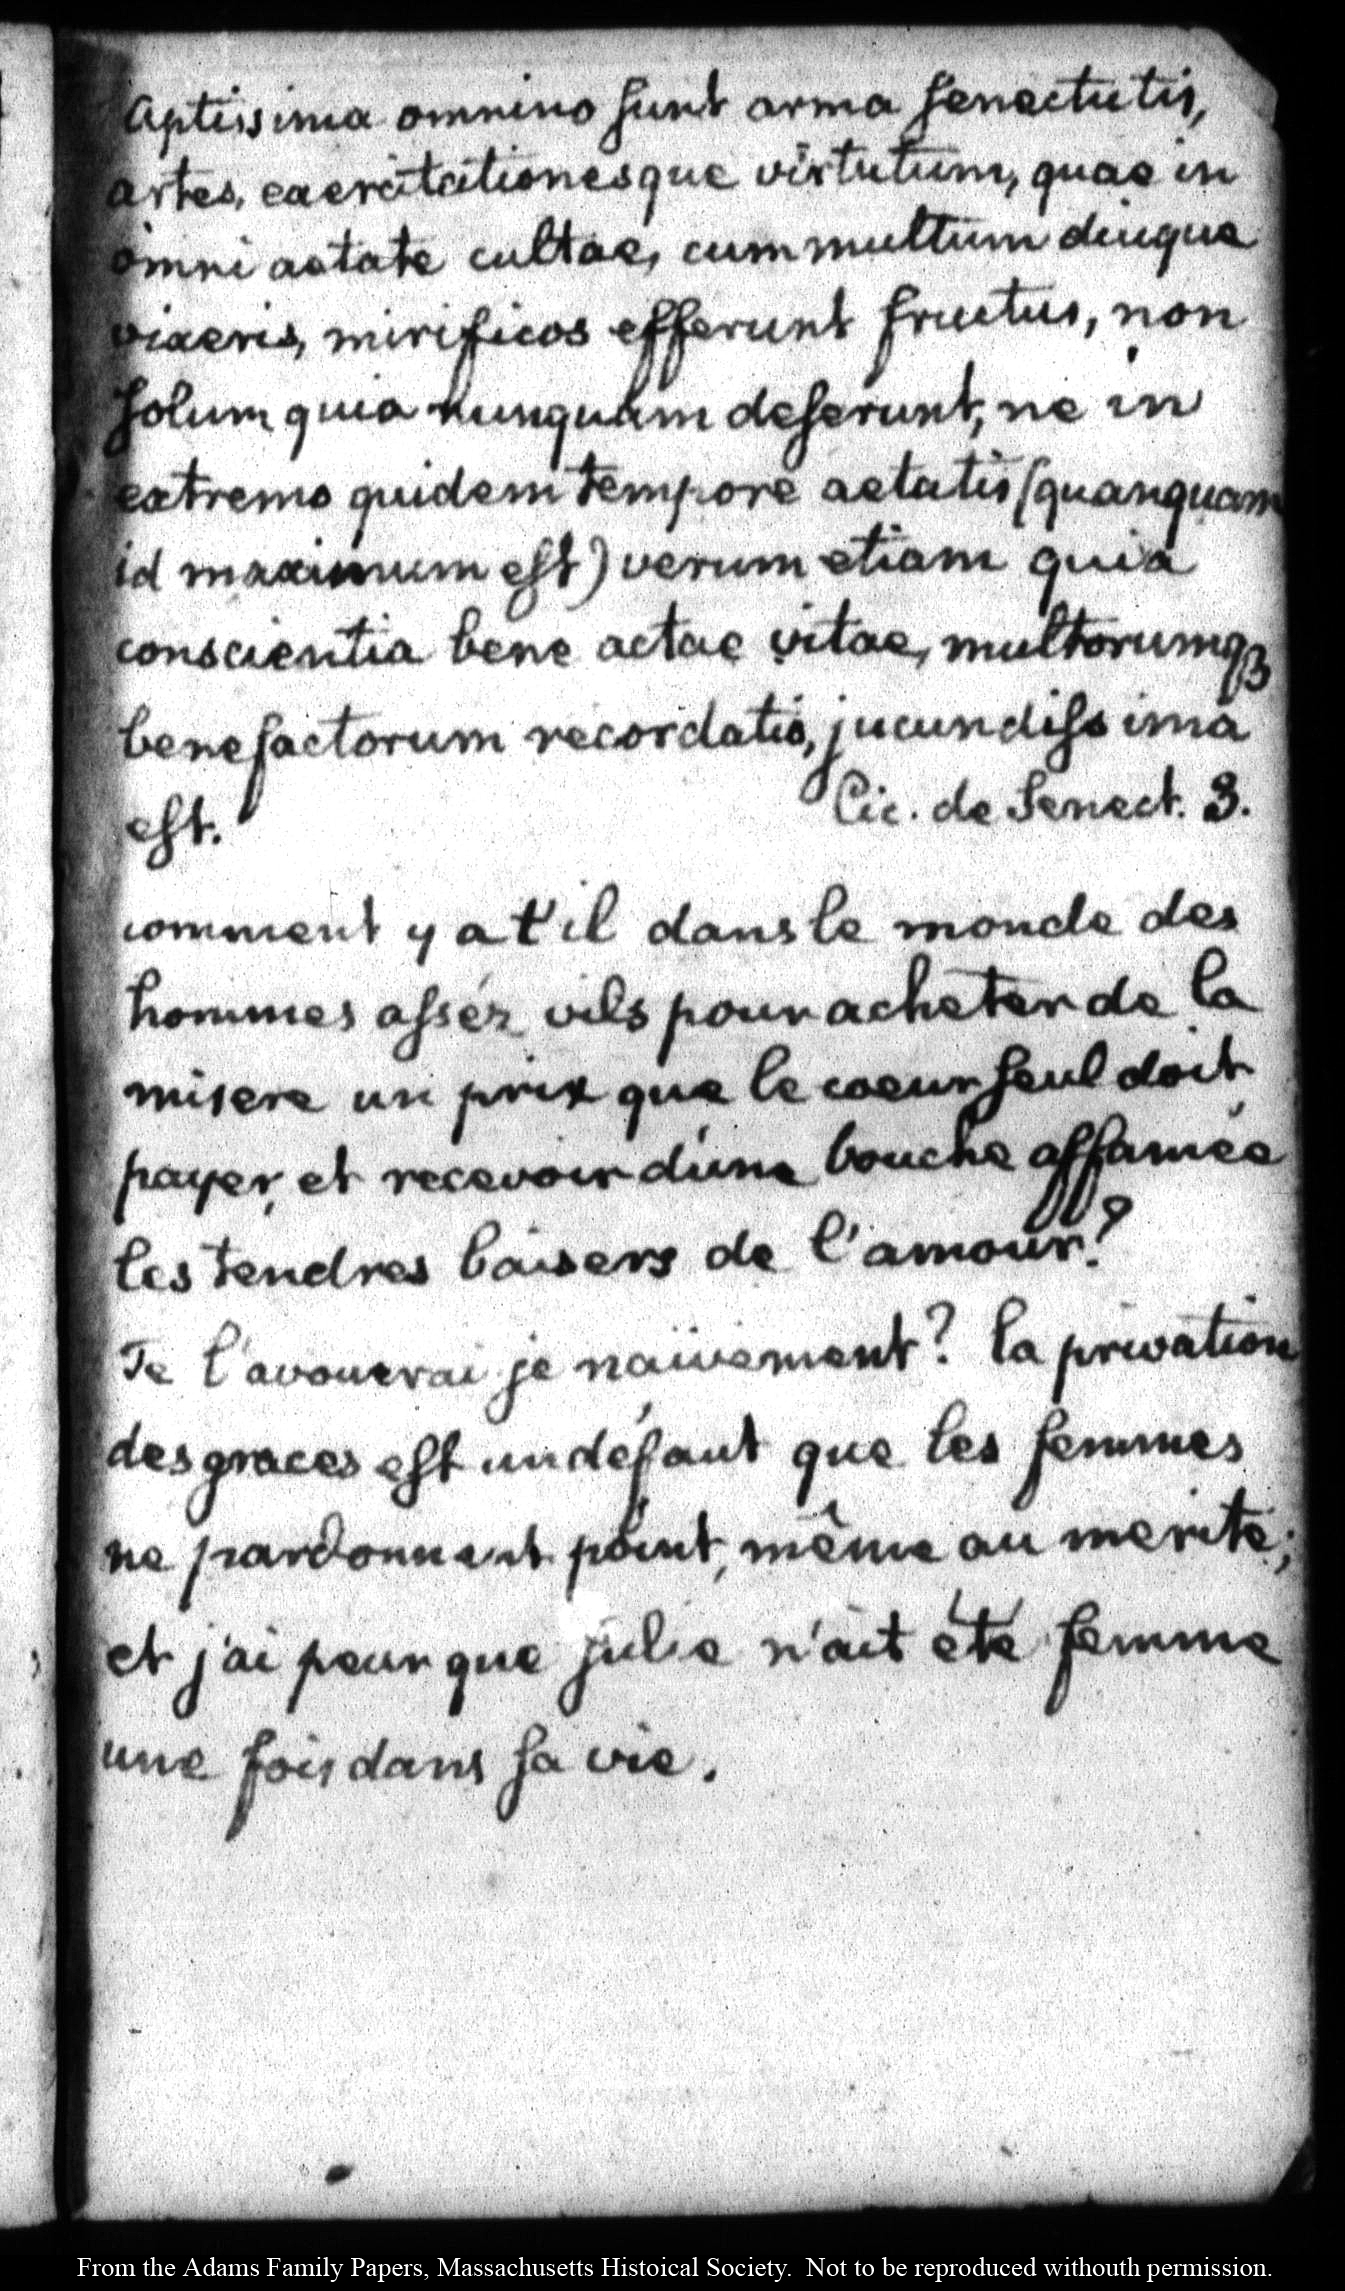 Aptissima omnino sunt arma senectutis,
artes, exercitationesque virtutum, quae in
omni aetate cultae, cum multum diuque
vixeris, mirificos efferunt fructus, non
solum quia nunquam deserunt, ne in
extremo quidem tempore aetatis (quanquam
id maximum est) verum etiam quia
conscientia bene actae vitae, multorumqꝫ
benefactorum recordatio, jucundissima
est. Cic. de Senect. 3.
comment y a t'il dans le monde des
hommes assés vils pour acheter de la
misere un prix que le coeur seul doit
payer, et recevoir d'une bouche affamée
les tendres baisers de l'amour?
Te l'avouerai je naïvement? la privation
des graces est un défaut que les femmes
ne pardonnent point, même au merite;
et j'ai peur que julie n'ait été femme
une fois dans sa vie.
From the Adams Family Papers, Massachusetts Histoical Society. Not to be reproduced withouth permission.